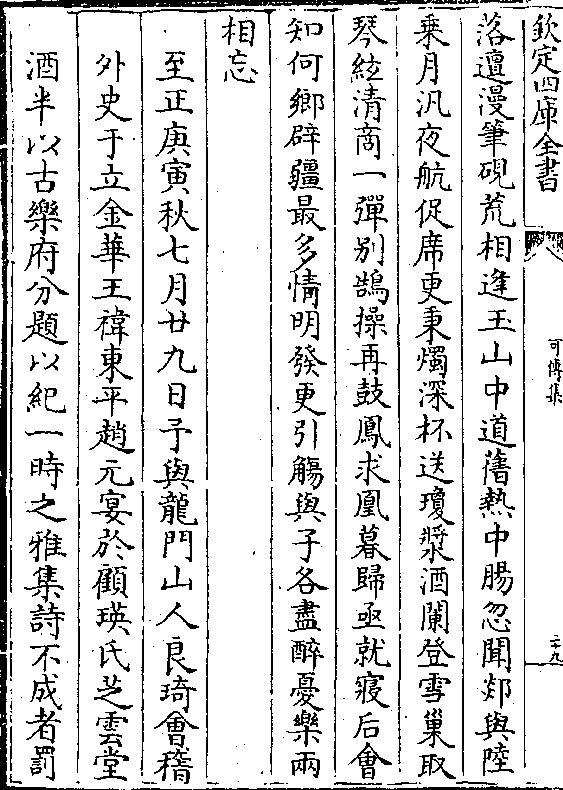 欽定四庫全書
可傳集
二十九
落邅漫筆硯荒相逢玉山中道舊熱中腸忽聞郯與陸
乗月汎夜航促席更秉燭深杯送瓊漿酒闌登雪巢取
琴絃清商一彈别鵠操再鼓鳳求凰暮歸亟就寢后㑹
知何鄉辟疆最多情明發更引觴與子各盡醉憂樂兩
相忘
至正庚寅秋七月廿九日予與龍門山人良琦㑹稽
外史于立金華王禕東平趙元宴於顧瑛氏芝雲堂
酒半以古樂府分題以紀一時之雅集詩不成者罰